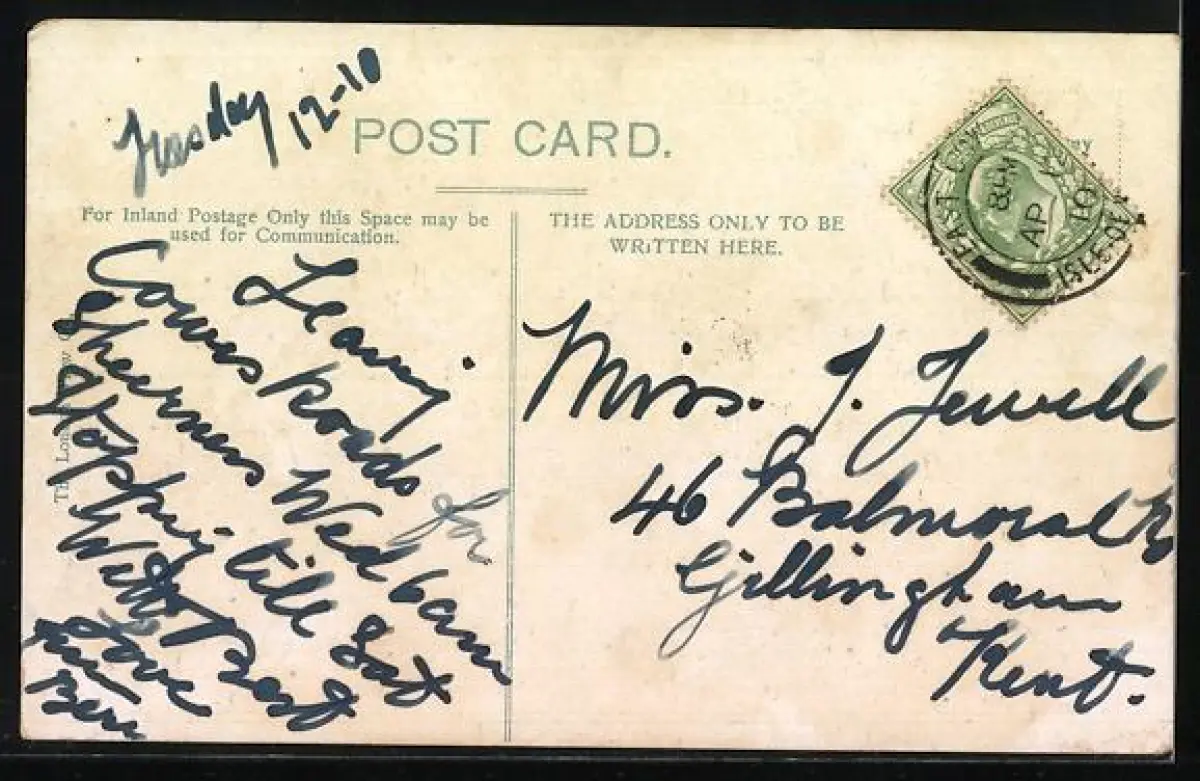 Tuesday 12-10
POST CARD.
For Inland Postage Only this Space may be
used for Communication.
THE ADDRESS ONLY TO BE
WRITTEN HERE.
EAST COWES
8 PM
AP
10
Leaving
Cowes Roads for
Sheerness Wed 6 am
Stopping till Sat
With Best
Love
Ben
Miss. J. Jewell
46 Balmoral Rd
Gillingham
Kent.